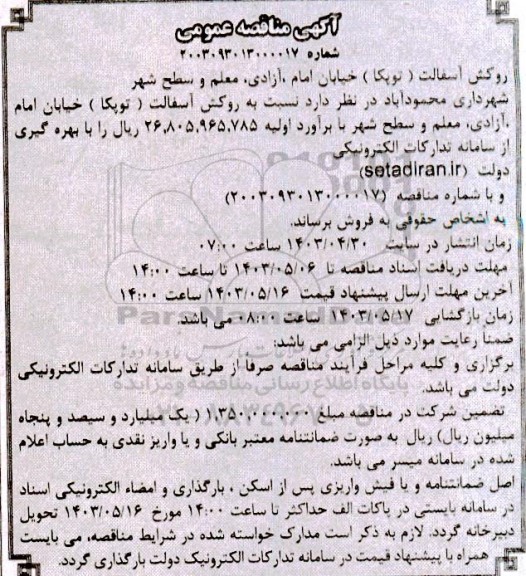 آگهی مناقصه عمومی
شماره ۲۰۰۳۰۹۳۰۱۳۰۰۰۰۱۷
روکش آسفالت ( توپکا ) خیابان امام ،آزادی، معلم و سطح شهر
شهرداری محمودآباد در نظر دارد نسبت به روکش آسفالت ( توپکا ) خیابان امام
،آزادی، معلم و سطح شهر با برآورد اولیه ۲۶,۸۰۵,۹۶۵,۷۸۵ ریال را با بهره گیری
از سامانه تدارکات الکترونیکی
دولت (setadiran.ir)
و با شماره مناقصه (۲۰۰۳۰۹۳۰۱۳۰۰۰۰۱۷)
به اشخاص حقوقی به فروش برساند.
زمان انتشار در سایت ۱۴۰۳/۰۴/۳۰ ساعت ۰۷:۰۰
مهلت دریافت اسناد مناقصه تا ۱۴۰۳/۰۵/۰۶ تا ساعت ۱۴:۰۰
آخرین مهلت ارسال پیشنهاد قیمت ۱۴۰۳/۰۵/۱۶ ساعت ۱۴:۰۰
زمان بازگشایی ۱۴۰۳/۰۵/۱۷ ساعت ۰۸:۰۰ می باشد.
ضمناً رعایت موارد ذیل الزامی می باشد:
برگزاری و کلیه مراحل فرآیند مناقصه صرفا از طریق سامانه تدارکات الکترونیکی
دولت می باشد.
تضمین شرکت در مناقصه مبلغ ۱,۳۵۰,۰۰۰,۰۰۰ ( یک میلیارد و سیصد و پنجاه
میلیون ریال) ریال به صورت ضمانتنامه معتبر بانکی و یا واریز نقدی به حساب اعلام
شده در سامانه میسر می باشد.
اصل ضمانتنامه و یا فیش واریزی پس از اسکن ، بارگذاری و امضاء الکترونیکی اسناد
در سامانه بایستی در پاکات الف حداکثر تا ساعت ۱۴:۰۰ مورخ ۱۴۰۳/۰۵/۱۶ تحویل
دبیرخانه گردد. لازم به ذکر است مدارک خواسته شده در شرایط مناقصه، می بایست
همراه با پیشنهاد قیمت در سامانه تدارکات الکترونیک دولت بارگذاری گردد.